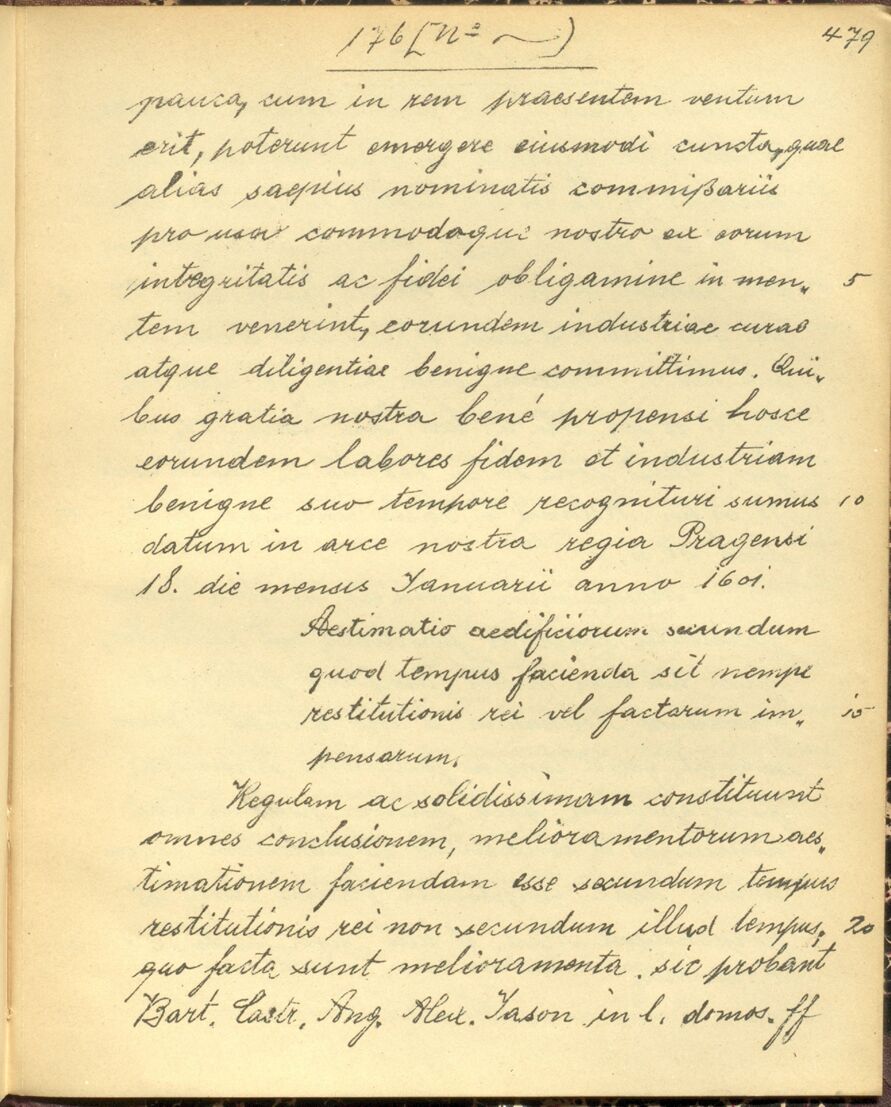 176 [Nº ~)
479
pauca, cum in rem praesentem ventum
erit, poterunt emergere eiusmodi cuncta, quae
alias saepius nominatis commißariis
pro usu commodoque nostro ex eorum
integritatis ac fidei obligamine in men„ 5
tem venerint, eorundem industriae curae
atque diligentiae benigne committimus. Qui„
bus gratia nostra bené propensi hosce
eorundem labores fidem et industriam
benigne suo tempore recognituri sumus 10
datum in arce nostra regia Pragensi
18. die mensis Januarii anno 1601.
Aestimatio aedificiorum secundum
quod tempus facienda sit nempe
restitutionis rei vel factarum im„ 15
pensarum.
Regulam ac solidissimam constituunt
omnes conclusionem, melioramentorum aes„
timationem faciendam esse secundum tempus
restitutionis rei non secundum illud tempus, 20
quo facta sunt melioramenta. sic probant
Bart. Castr. Ang. Alex. Jason in l. domos. ff